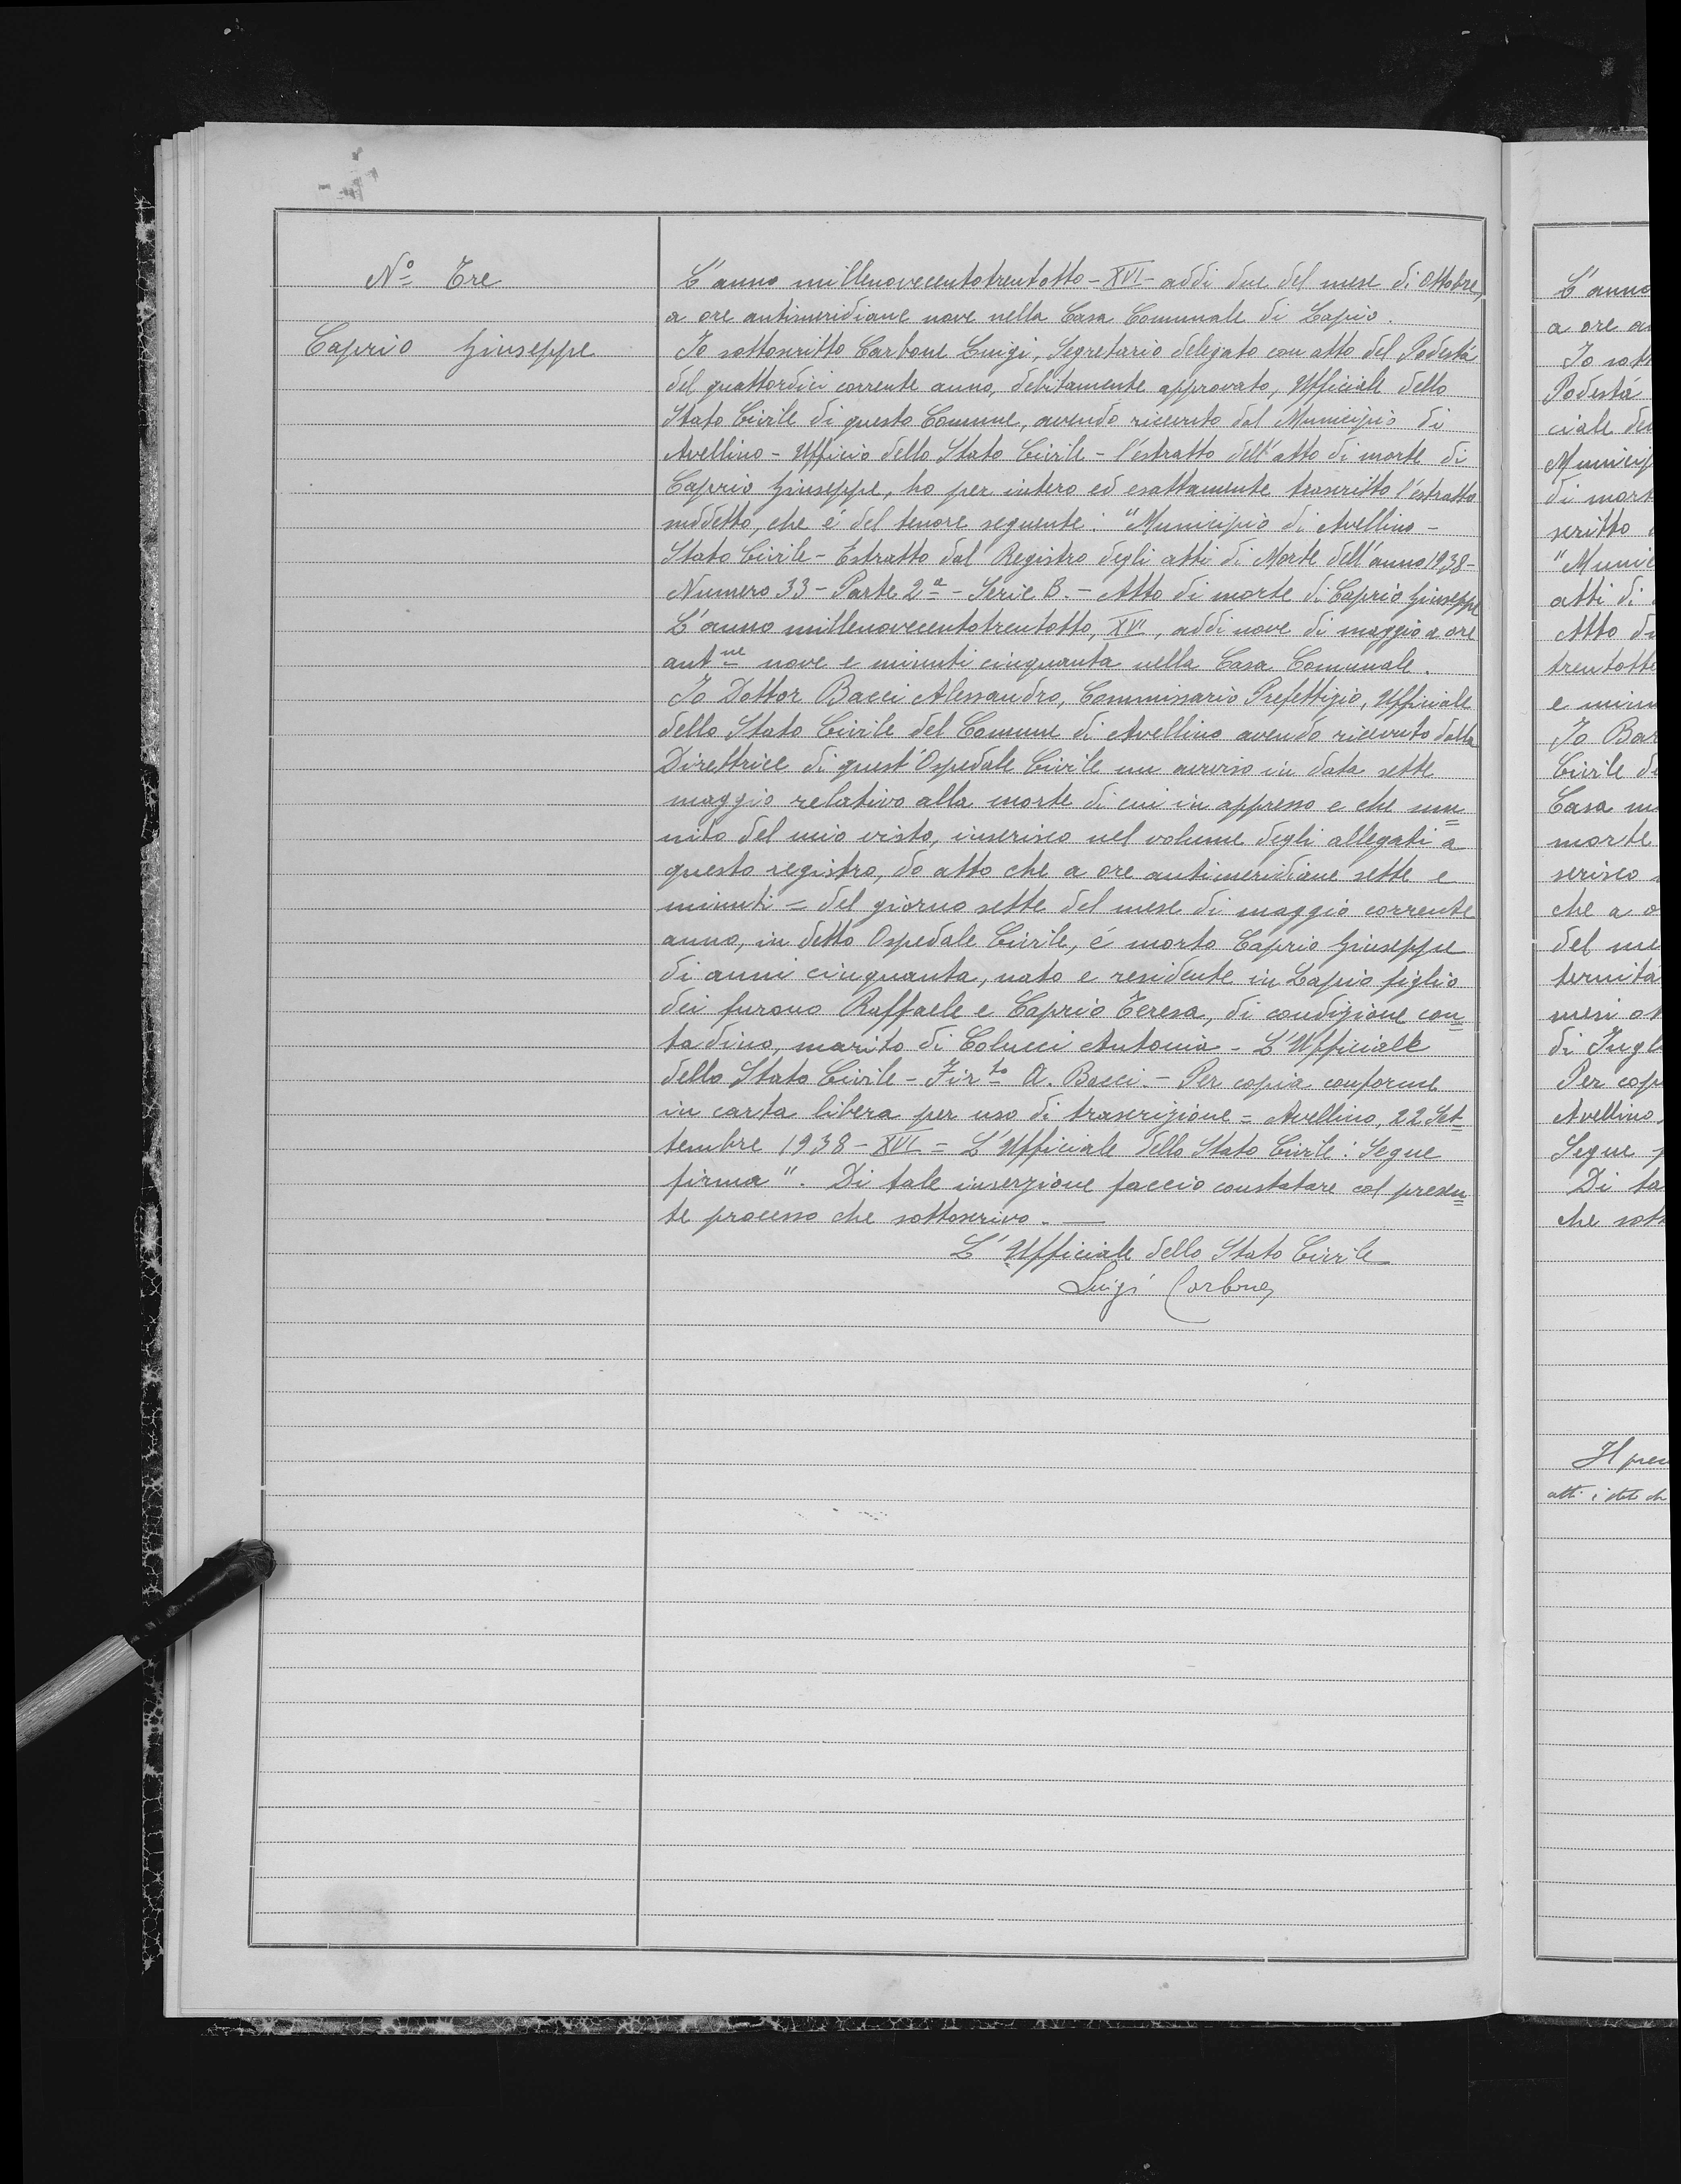 Nº Tre
Caprio Giuseppe
L'anno millenovecentotrentotto - XVI - addì due del mese di Ottobre,
a ore antimeridiane nove nella Casa Comunale di Lapio.
Io sottoscritto Carbone Luigi, Segretario delegato con atto del Podestà
del quattordici corrente anno, debitamente approvato, Ufficiale dello
Stato Civile di questo Comune, avendo ricevuto dal Municipio di
Avellino - Ufficio dello Stato Civile - l'estratto dell'atto di morte di
Caprio Giuseppe, ho per intero ed esattamente trascritto l'estratto
suddetto, che è del tenore seguente: "Municipio di Avellino -
Stato Civile - Estratto dal Registro degli atti di Morte dell'anno 1938 -
Numero 33 - Parte 2ª - Serie B. - Atto di morte di Caprio Giuseppe
L'anno millenovecentotrentotto, XVI, addì nove di maggio a ore
antne nove e minuti cinquanta nella Casa Comunale.
Io Dottor Bacci Alessandro, Commissario Prefettizio, Ufficiale
dello Stato Civile del Comune di Avellino avendo ricevuto dalla
Direttrice di quest'Ospedale Civile un avviso in data sette
maggio relativo alla morte di cui in appresso e che mu=
nito del mio visto, inserisco nel volume degli allegati a
questo registro, do atto che a ore antimeridiane sette e
minuti = del giorno sette del mese di maggio corrente
anno, in detto Ospedale Civile, è morto Caprio Giuseppe
di anni cinquanta, nato e residente in Lapio figlio
dei furono Raffaele e Caprio Teresa, di condizione con=
tadino, marito di Colucci Antonia - L'Ufficiale
dello Stato Civile - Firto A. Bacci. - Per copia conforme
in carta libera per uso di trascrizione = Avellino, 22 Set=
tembre 1938 - XVI = L'Ufficiale dello Stato Civile: Segue
firma". Di tale inserzione faccio constatare col presen=
te processo che sottoscrivo. —
L'Ufficiale dello Stato Civile
Luigi Carbone
L'anno
a ore an
Io sott
Podestà
ciale del
Municip
di mort
scritto
"Munic
atti di
Atto di
trentotto
e minu
Io Bac
Civile d
Casa
morte
serisco
che a o
del me
ternita
mesi ot
di Lugl
Per cop
Avellino,
Segue
Di ta
che sott
Il pres